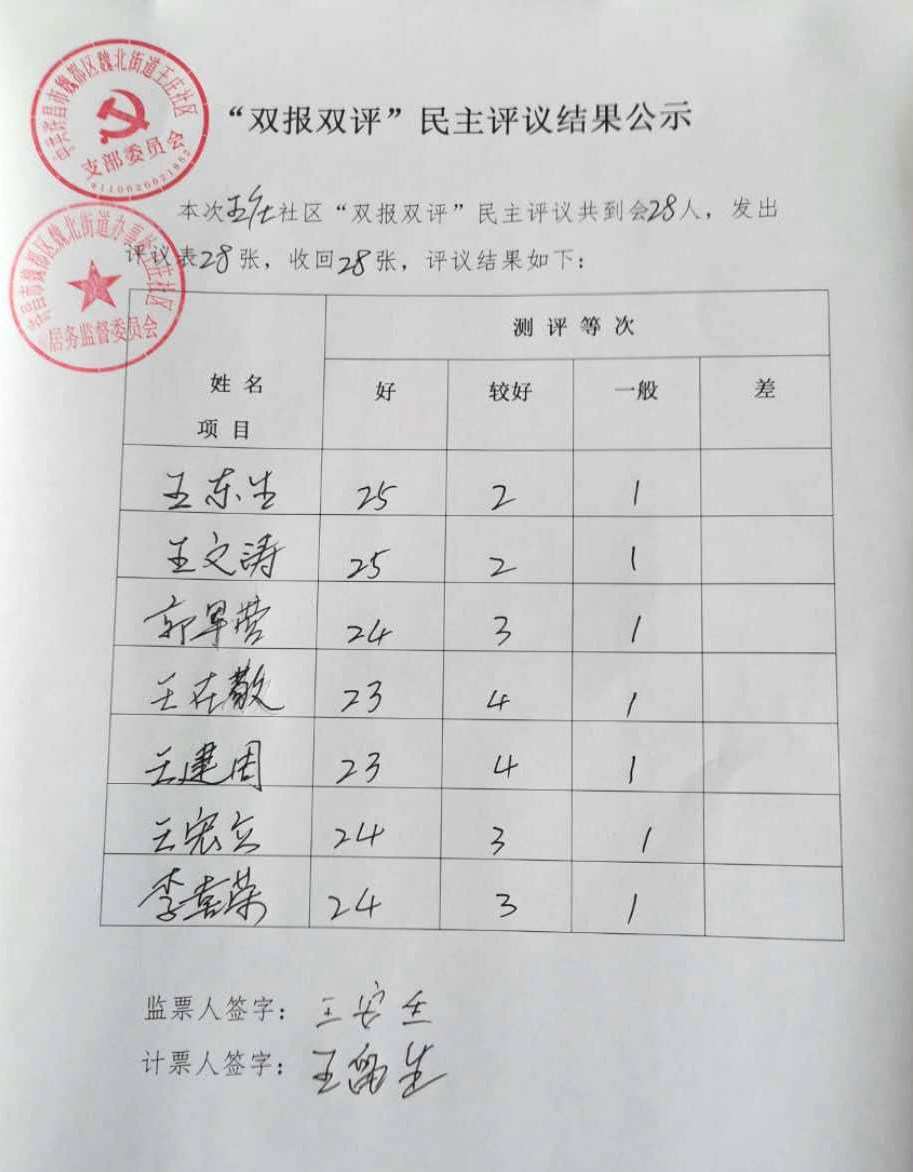 中共许昌市魏都区魏北街道王庄社区
支部委员会
4110020021852
“双报双评”民主评议结果公示
本次王庄社区“双报双评”民主评议共到会28人，发出
评议表28张，收回28张，评议结果如下：
许昌市魏都区魏北街道办事处王庄社区
居务监督委员会
测评等次
姓名 好 较好 一般 差
项目
王东生 25 2 1
王文涛 25 2 1
郭旱营 24 3 1
王在敬 23 4 1
王建周 23 4 1
王宏立 24 3 1
李喜荣 24 3 1
监票人签字：王安
计票人签字：王留生